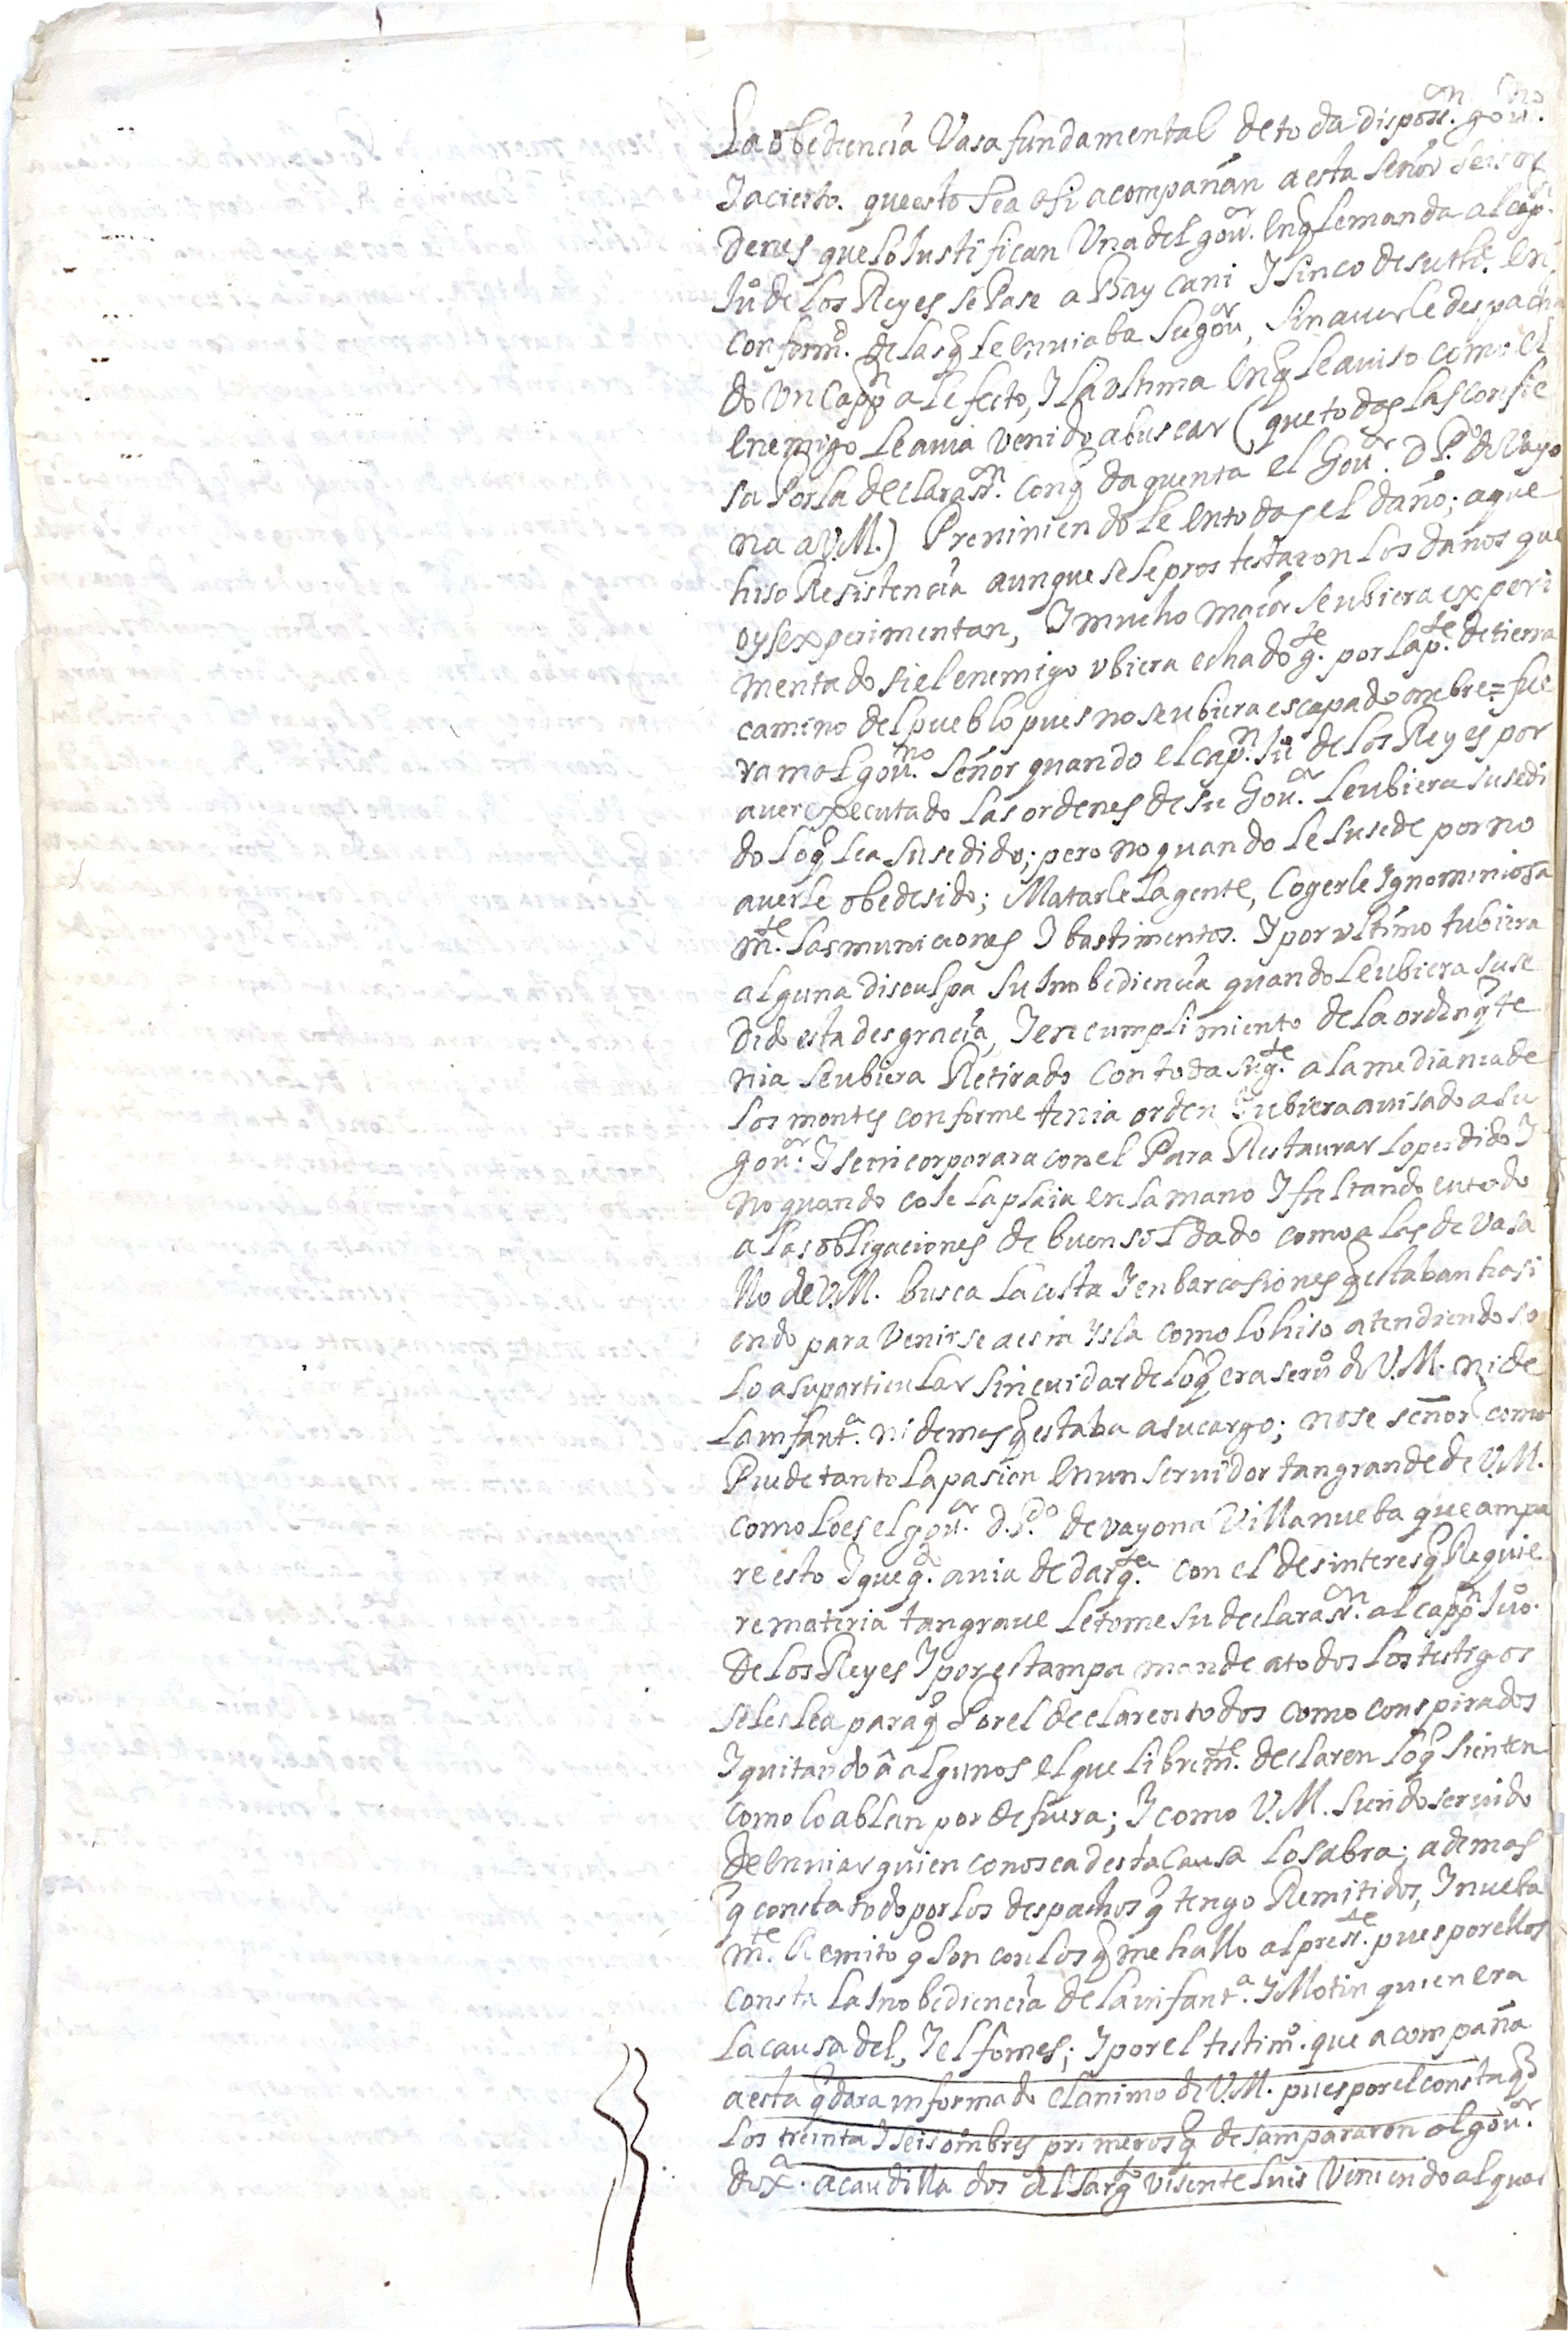 La obediencia Vasa fundamental de toda disposn. gouno.
I acierto. que esto sea asi acompañan a esta señor seis or
denes que lo Justifican Una del gouor. en q̃ le manda al capn.
Juo de los Reyes se Pase a Bay cani I sinco de su tho. en
conformd. de las q̃ le enuiaba su gouor, sin auerle despacha
do un Cappn al efecto, I la vltima en q̃ le auiso como el
enemigo le auia venido a buscar (que todas las confie
sa Por la declarasn. con q̃ da quenta el Gour. D Po. de Vayo
na a V.M.) Preuiniendole en todas el daño; a que
hiso Resistencia aunque se le prostestaron los daños que
oy se experimentan, I mucho maior se ubiera experi
mentado si el enemigo vbiera echado gte. por la pte. de tierra
camino del pueblo pues no se ubiera escapado ombre = fue
ra mal gouno. señor quando el capn. Juo de los Reyes por
auer executado las ordenes de su Gouor. le ubiera susedi
do lo q̃ le a susedido; pero no quando le susede por no
auerle obedesido; Matarle la gente, Cogerle Ignominiosa
mte. las municiones I bastimentos. I por vltimo tubiera
alguna disculpa su Inobediencia quando le ubiera suse
dido esta desgracia, I en cumplimiento de la orden q̃ te
nia se ubiera Retirado con toda su gte. a la mediania de
los montes conforme tenia orden I ubiera auisado a su
gouor. I se incorporara con el Para Restaurar lo perdido I
no quando coje la plaia en la mano I faltando en todo
a las obligaciones de buen soldado como a las de vasa
llo de V.M. busca la costa I enbarcasiones q̃ estaban hasi
endo para venirse a esta Ysla como lo hiso atendiendo so
lo a su particular sin cuidar de lo q̃ era seruo de V.M. ni de
la infanta. ni demas q̃ estaba a su cargo; no se señor como
Puede tanto la pasion en un seruidor tan grande de V.M.
como lo es el gour. d. Po. de vayona Villanueba que ampa
re esto I que qdo. auia de dar qta. con el desinteres q̃ Requie
re materia tan graue le tome su declarasn. al cappn Juo.
de los Reyes I por estampa mande a todos los testigos
se les lea para q̃ Por el declaren todos como conspirados
I quitando â algunos el que libremte. declaren lo q̃ sienten
como lo ablan por de fuera; I como V.M. siendo seruido
de enuiar quien conosca desta Causa lo sabra; ademas
q̃ consta todo por los despachos q̃ tengo Remitidos, I nueba
mte. Remito q̃ son con los q̃ me hallo al preste. pues por ellos
consta la Inobediencia de la infanta. I Motin quien era
la causa del, I el fomes; I por el testimo. que acompaña
a esta q̃dara informado el animo de V.M. pues por el consta q̃
los treinta I seis ombres primeros q̃ desampararon al gouor.
acaudillados del sargo visente luis viniendo al quar